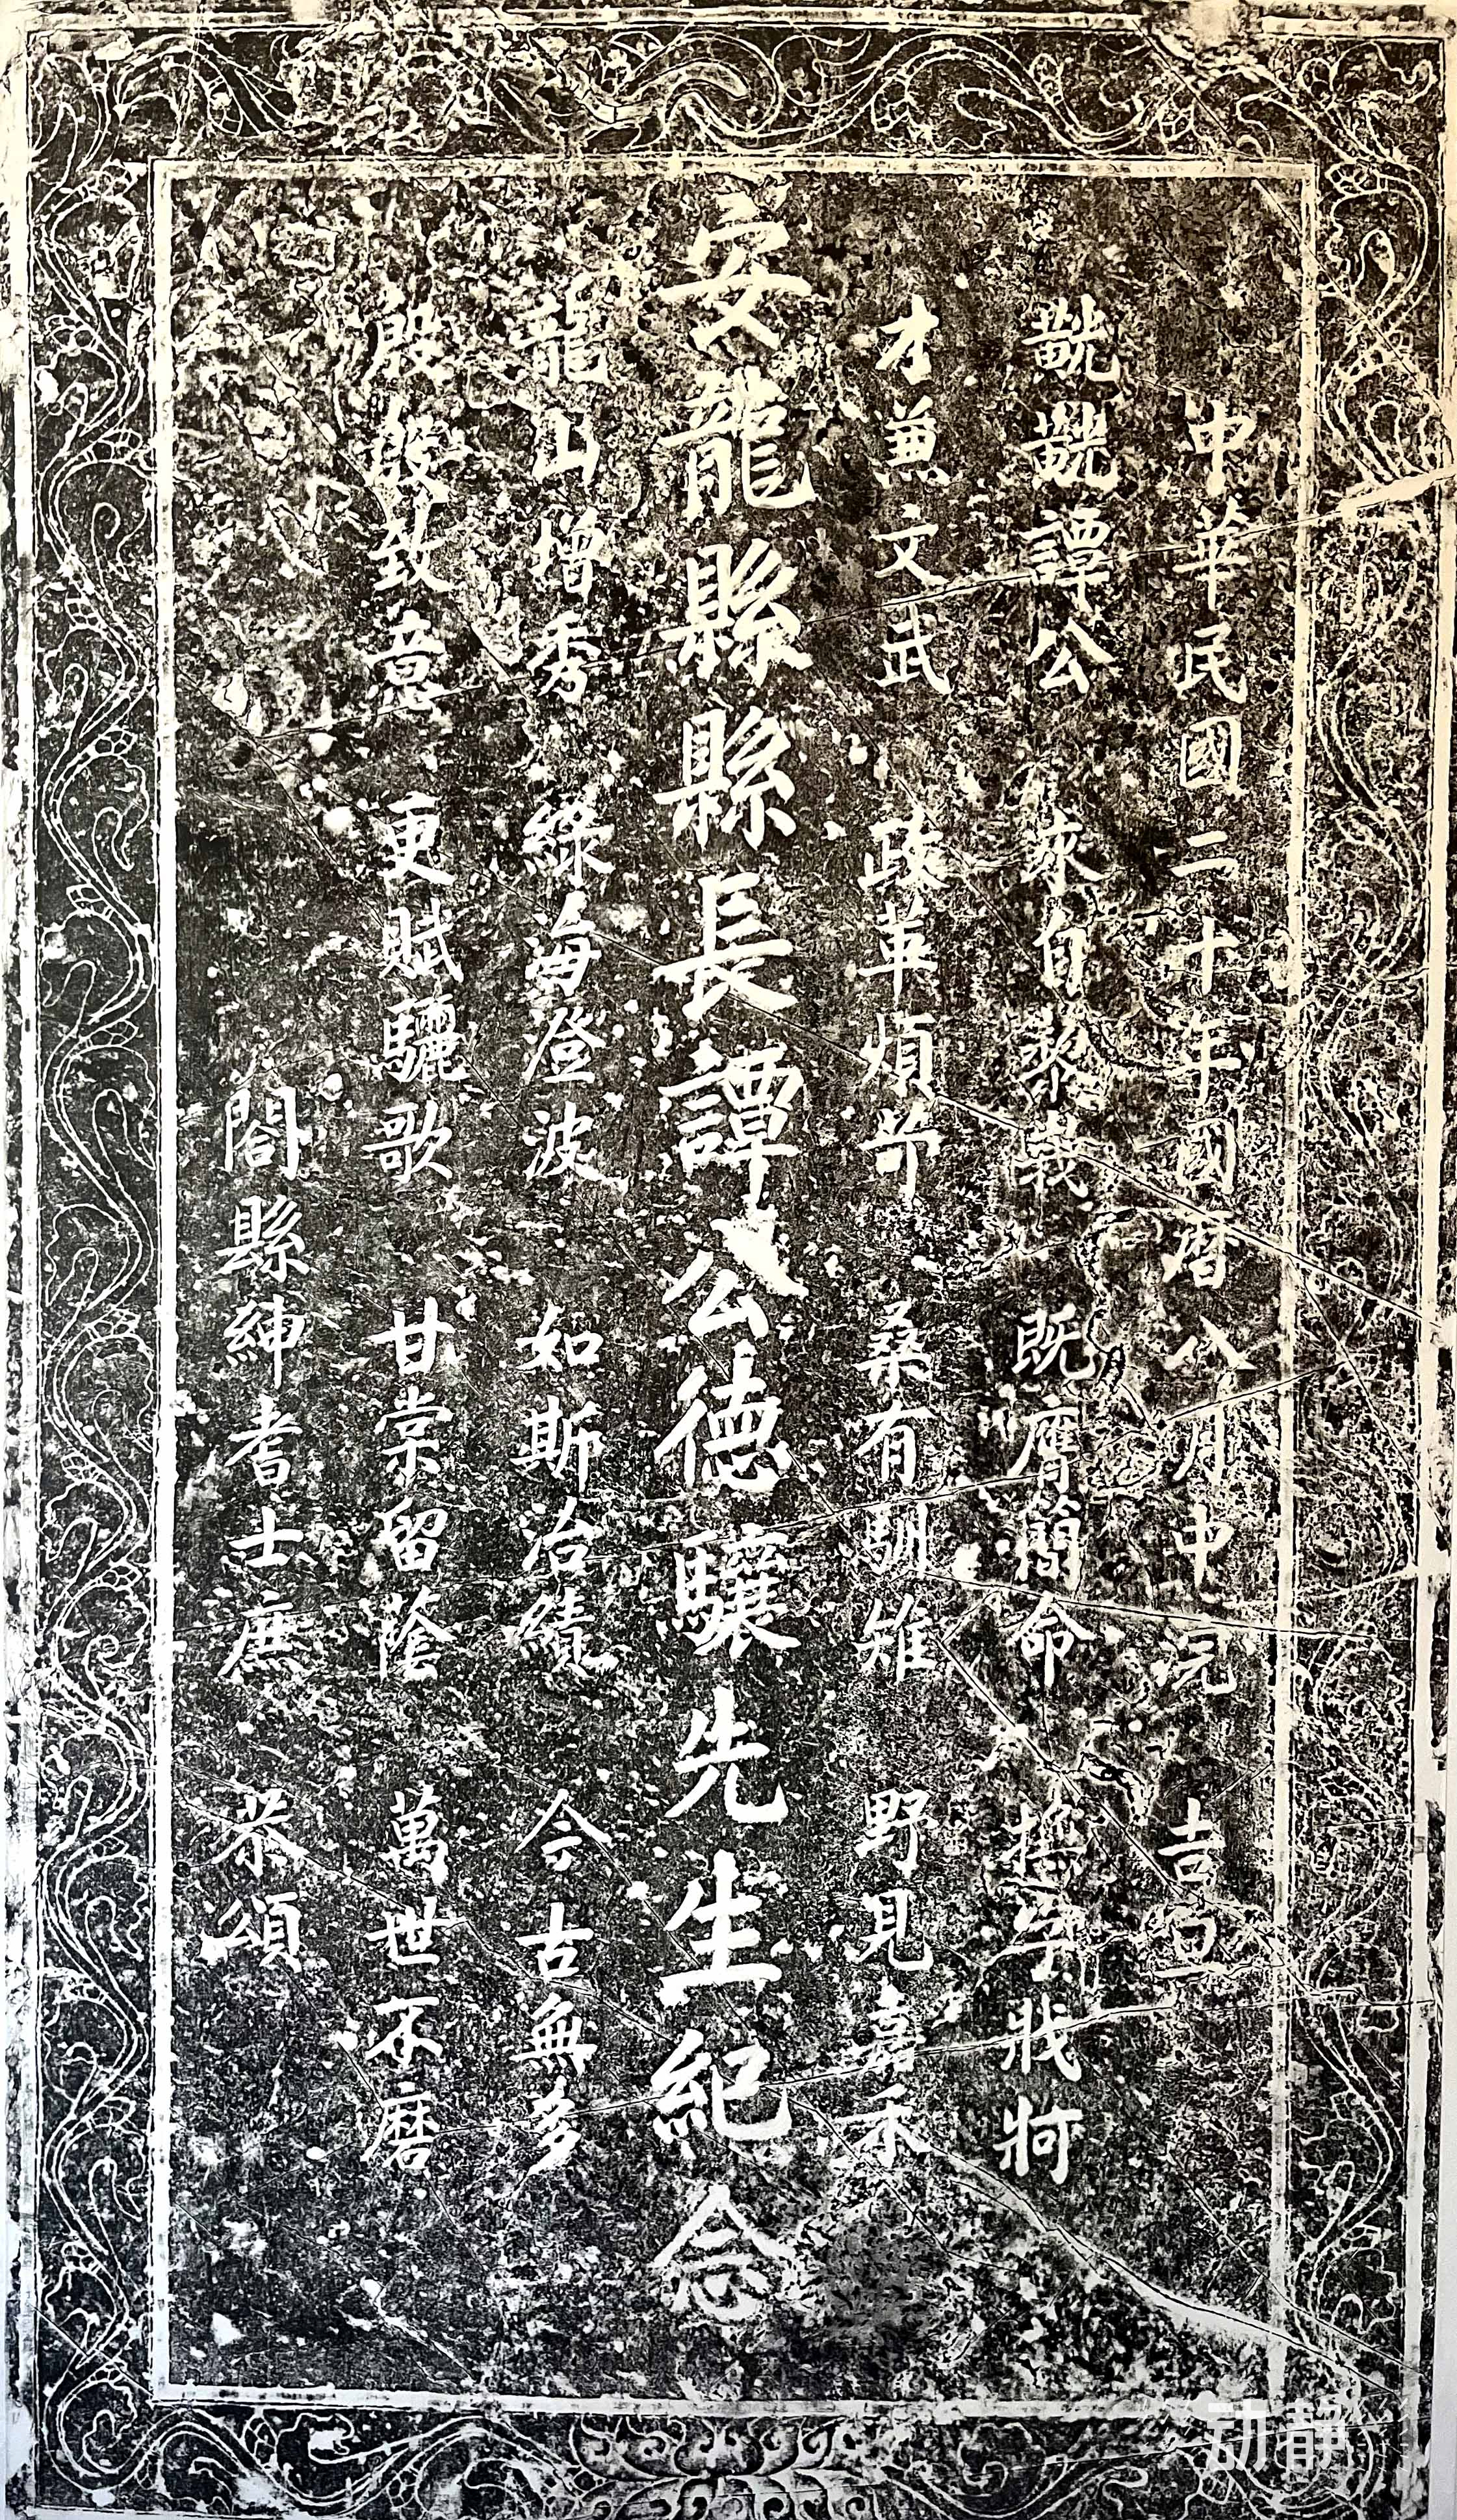 中華民國二十年國曆八月中浣 吉旦
譚公 來自黎峩 既膺簡命 撫字牂牁
才兼文武 政革煩苛 桑有馴雉 野見嘉禾
安龍縣縣長譚公德驤先生紀念
龍山增秀 綠海澄波 如斯治績 今古無多
殷殷致意 更賦驪歌 甘棠留蔭 萬世不磨
閤縣紳耆士庶 恭頌
动静